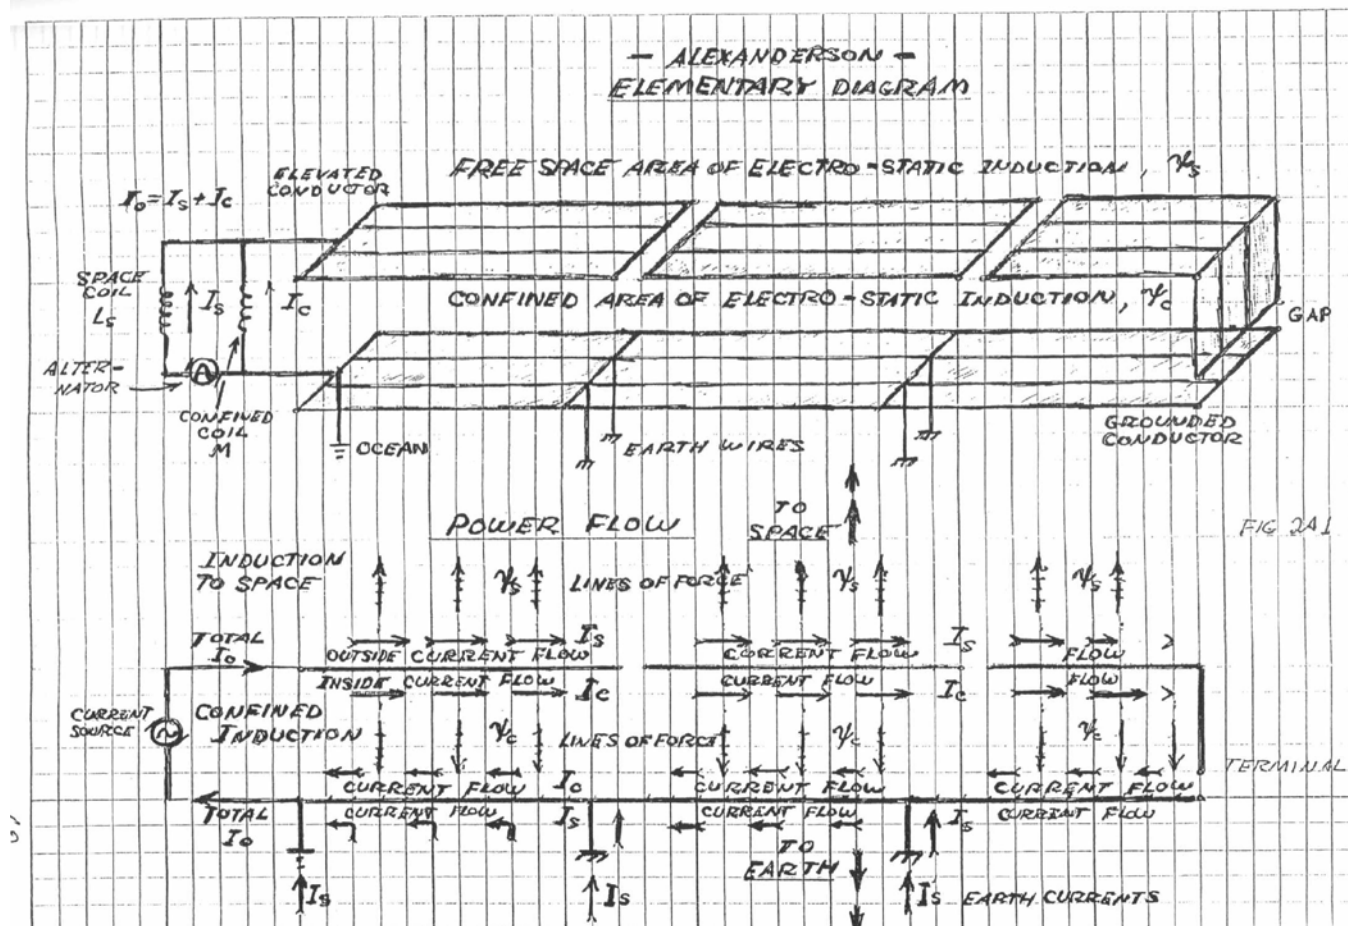 - ALEXANDERSON -
ELEMENTARY DIAGRAM
FREE SPACE AREA OF ELECTRO-STATIC INDUCTION, ψs
ELEVATED
CONDUCTOR
I₀ = Is + Ic
SPACE
COIL
Ls
Is
Ic
CONFINED AREA OF ELECTRO-STATIC INDUCTION, ψc
GAP
ALTER-
NATOR
A
CONFINED
COIL
M
OCEAN
EARTH WIRES
GROUNDED
CONDUCTOR
POWER FLOW
TO
SPACE
FIG 2A1
INDUCTION
TO SPACE
ψs
LINES OF FORCE
ψs
ψs
TOTAL
I₀
Is
Is
Is
OUTSIDE CURRENT FLOW
CURRENT FLOW
FLOW
INSIDE CURRENT FLOW
CURRENT FLOW
FLOW
Ic
Ic
CURRENT
SOURCE
CONFINED
INDUCTION
ψc
LINES OF FORCE
ψc
ψc
TERMINAL
CURRENT FLOW
I₀
CURRENT FLOW
CURRENT FLOW
TOTAL
I₀
CURRENT FLOW
Is
CURRENT FLOW
Is
CURRENT FLOW
TO
EARTH
Is
Is
Is
EARTH CURRENTS